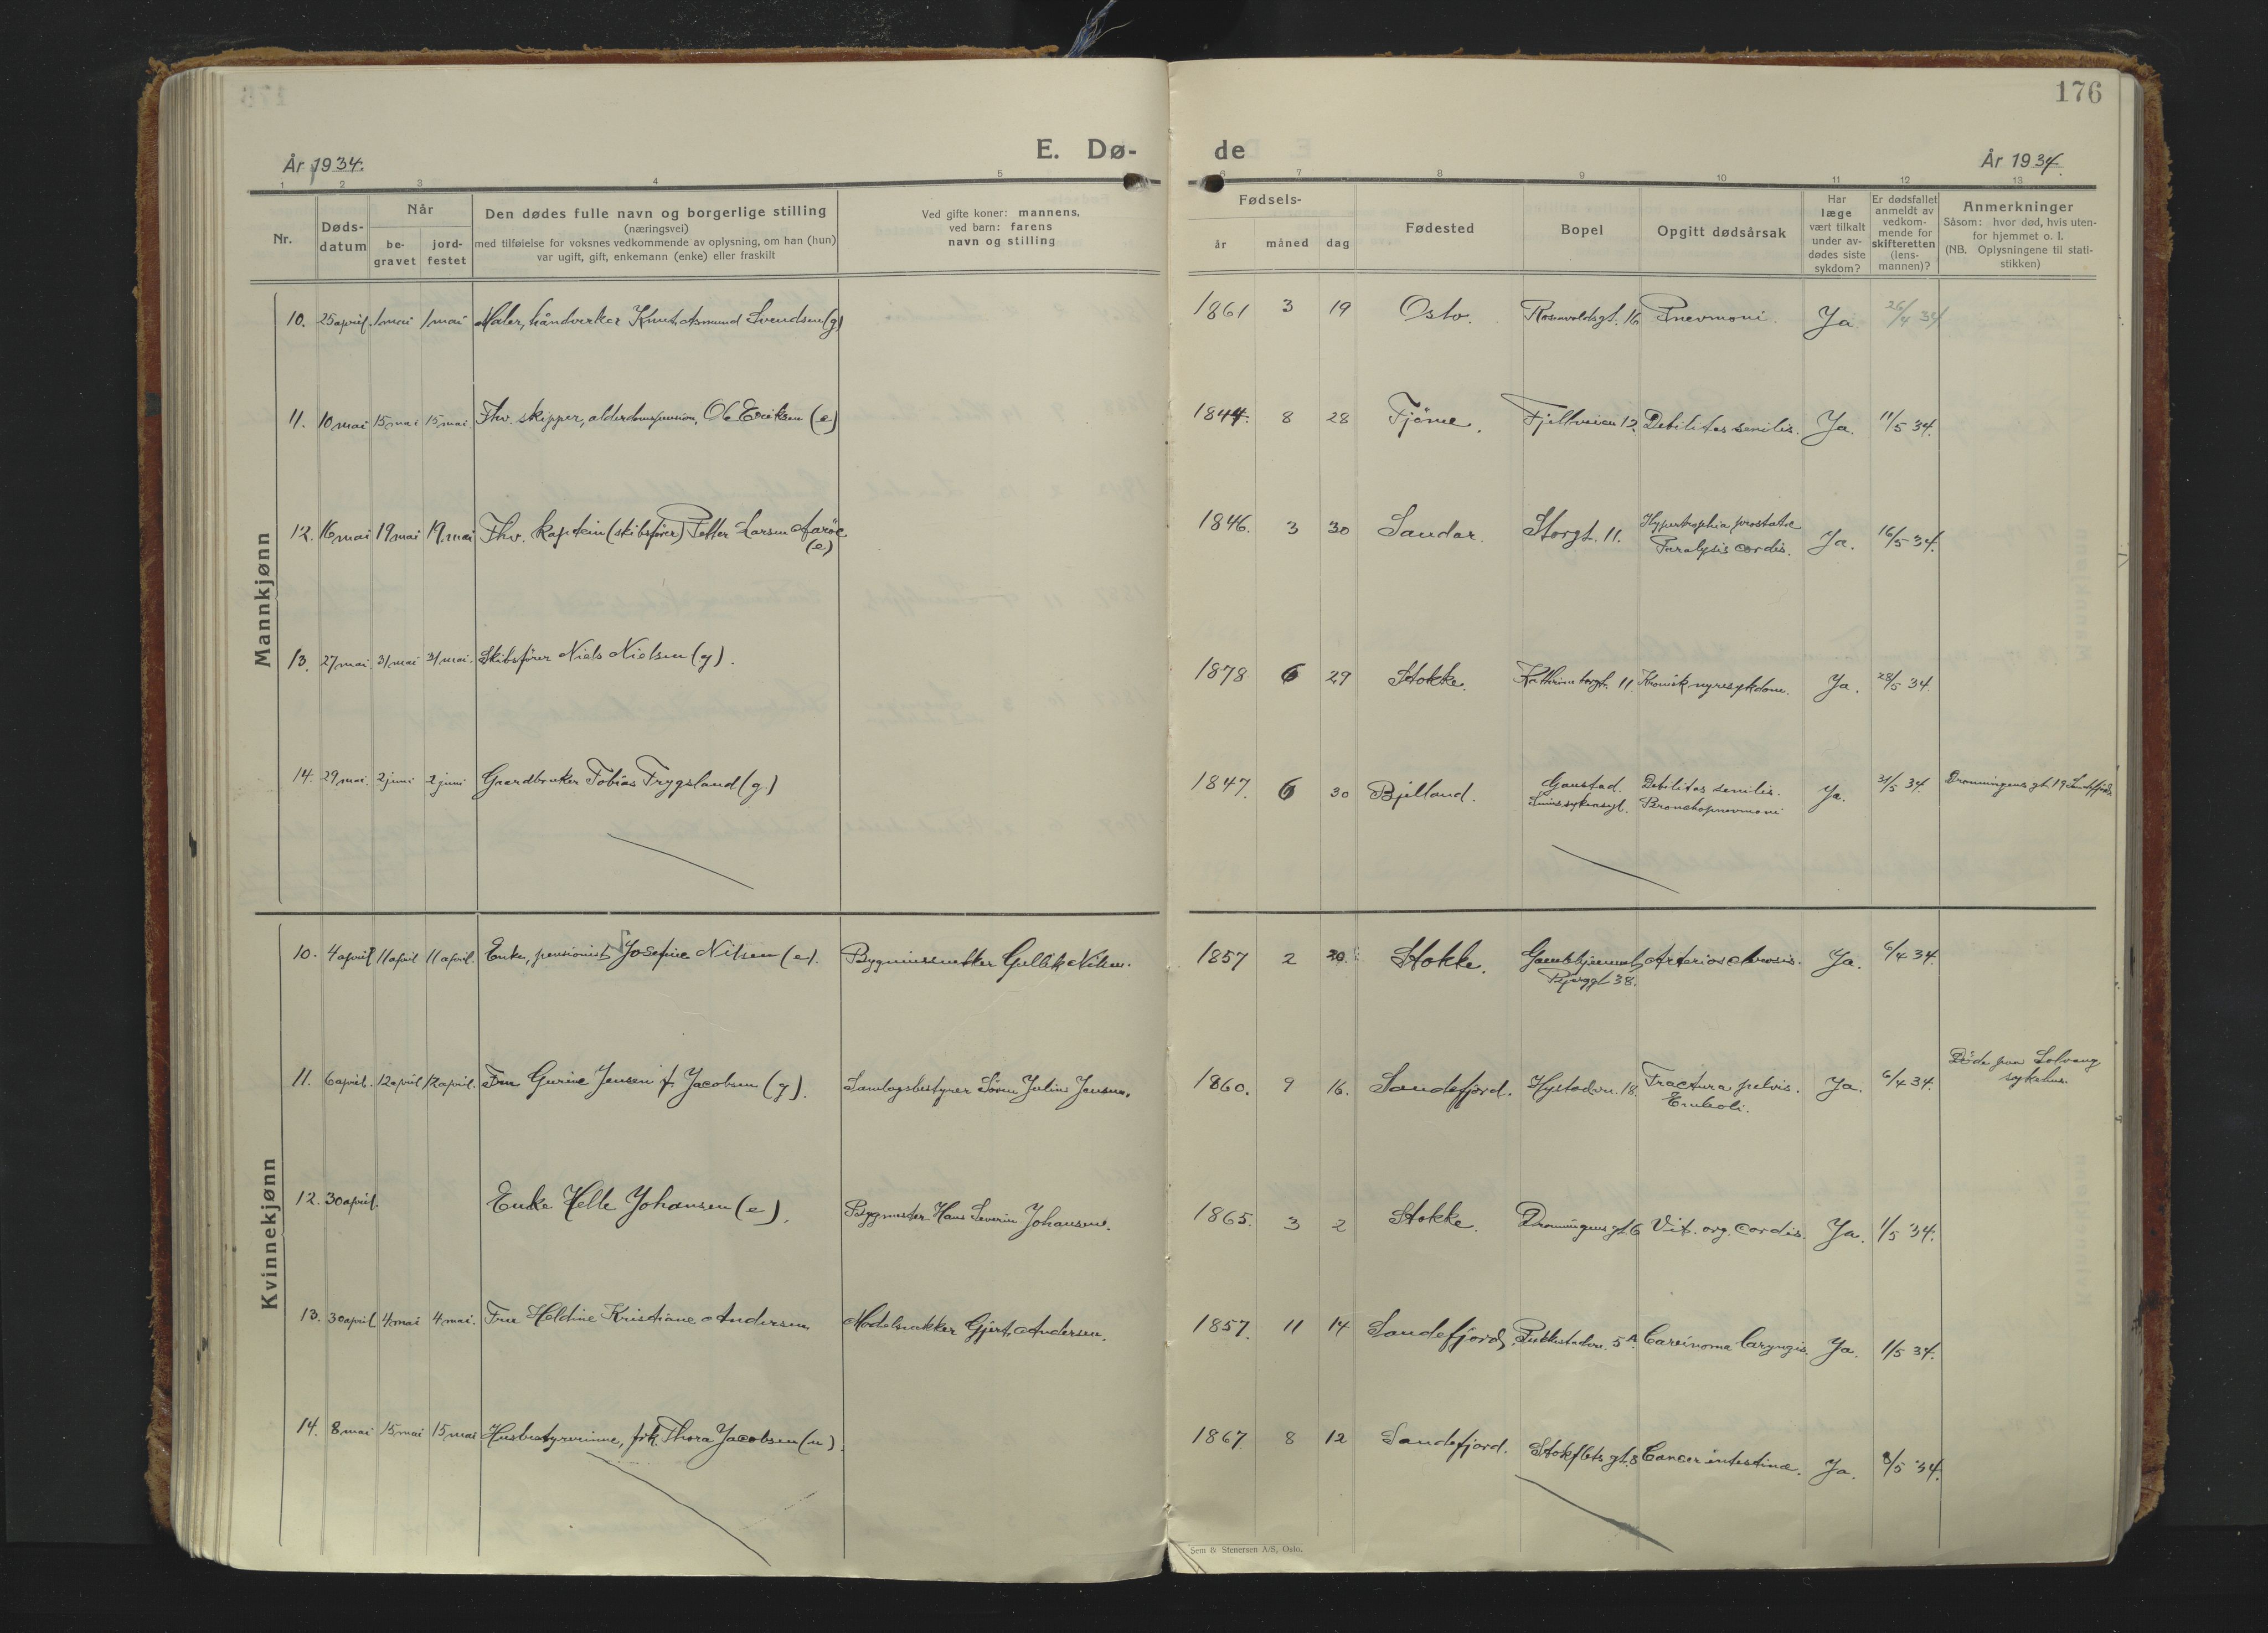 176
E. Dø- de
År 1934.
År 1934.
1 2 3 4 5 6 7 8 9 10 11 12 13
Nr.
Døds-
datum
Når
be-
gravet
jord-
festet
Den dødes fulle navn og borgerlige stilling
(næringsvei)
med tilføielse for voksnes vedkommende av oplysning, om han (hun)
var ugift, gift, enkemann (enke) eller fraskilt
Ved gifte koner: mannens,
ved barn: farens
navn og stilling
Fødsels-
år måned dag
Fødested
Bopel
Opgitt dødsårsak
Har
læge
vært tilkalt
under av-
dødes siste
sykdom?
Er dødsfallet
anmeldt av
vedkom-
mende for
skifteretten
(lens-
mannen)?
Anmerkninger
Såsom: hvor død, hvis uten-
for hjemmet o. l.
(NB. Oplysningene til stati-
stikken)
Mannkjønn
10. 25 april. 1 mai 1 mai Maler, håndverker Knut Asmund Svendsen (g) 1861 3 19 Oslo. Rosenvoldsgt. 16 Pnevmoni. Ja 26/4 34
11. 10 mai 15 mai 15 mai Fhv. skipper, alderdomspension, Ole Eriksen (e) 1844. 8 28 Tjöme. Fjellveien 12. Debilitas senilis. Ja. 11/5 34.
12. 16 mai 19 mai 19. mai Fhv. kaptein (skibsfører) Petter Larsen Aaröe
(e)
1846. 3 30 Sandar. Storgt. 11. Hypertrophia prostatae
Paralysis cordis. Ja. 16/5 34.
13. 27 mai 31 mai 31 mai. Skibsfører Niels Nielsen (g). 1878 6 29 Stokke. Kathrineborgt. 11. Kronisk nyresykdom. Ja. 28/5 34.
14. 29 mai. 2 juni 2 juni Gaardbruker Tobias Trygsland (g.) 1847. 6 30 Bjelland. Gaustad. Debilitas senilis. Ja. 31/5 34. Dronningens gt. 19 Sandefjord
Sinnssykeasyl. Bronchopnevmoni
Kvinnekjønn
10. 4 april 11 april 11 april. Enke, pensionist, Josefine Nilsen (e). Bygningssnekker Gullik Nilsen. 1857 2 20. Stokke. Gamlehjemmet, Arteriosclerosis. Ja. 6/4 34.
Bjerggt 38.
11. 6 april. 12 april 12 april. Fru Gurine Jensen f. Jacobsen (g). Samlagsbestyrer Sören Julius Jensen. 1860. 9 16. Sandefjord. Hystadvn. 18. Fractura pelvis.
Emboli. Ja. 6/4 34. Döde paa Solvang
sykehus.
12. 30 april. Enke Helle Johansen (e). Byggmester Hans Severin Johansen. 1865. 3 2 Stokke. Dronningens gt. 6 Vit. org. cordis. Ja. 1/5 34.
13. 30 april 4 mai 4 mai. Fru Heldine Kristiane Andersen Modelsnekker Gjert Andersen. 1857. 11 14 Sandefjord. 5A. Carcinoma laryngis. Ja. 1/5 34.
14. 8 mai 15 mai 15 mai Husbestyrerinne, frk. Thora Jacobsen (u). 1867 8 12 Sandefjord. Stokflets gt. 8 Cancer intestinae. Ja. 8/5 34.
Sem & Stenersen A/S, Oslo.